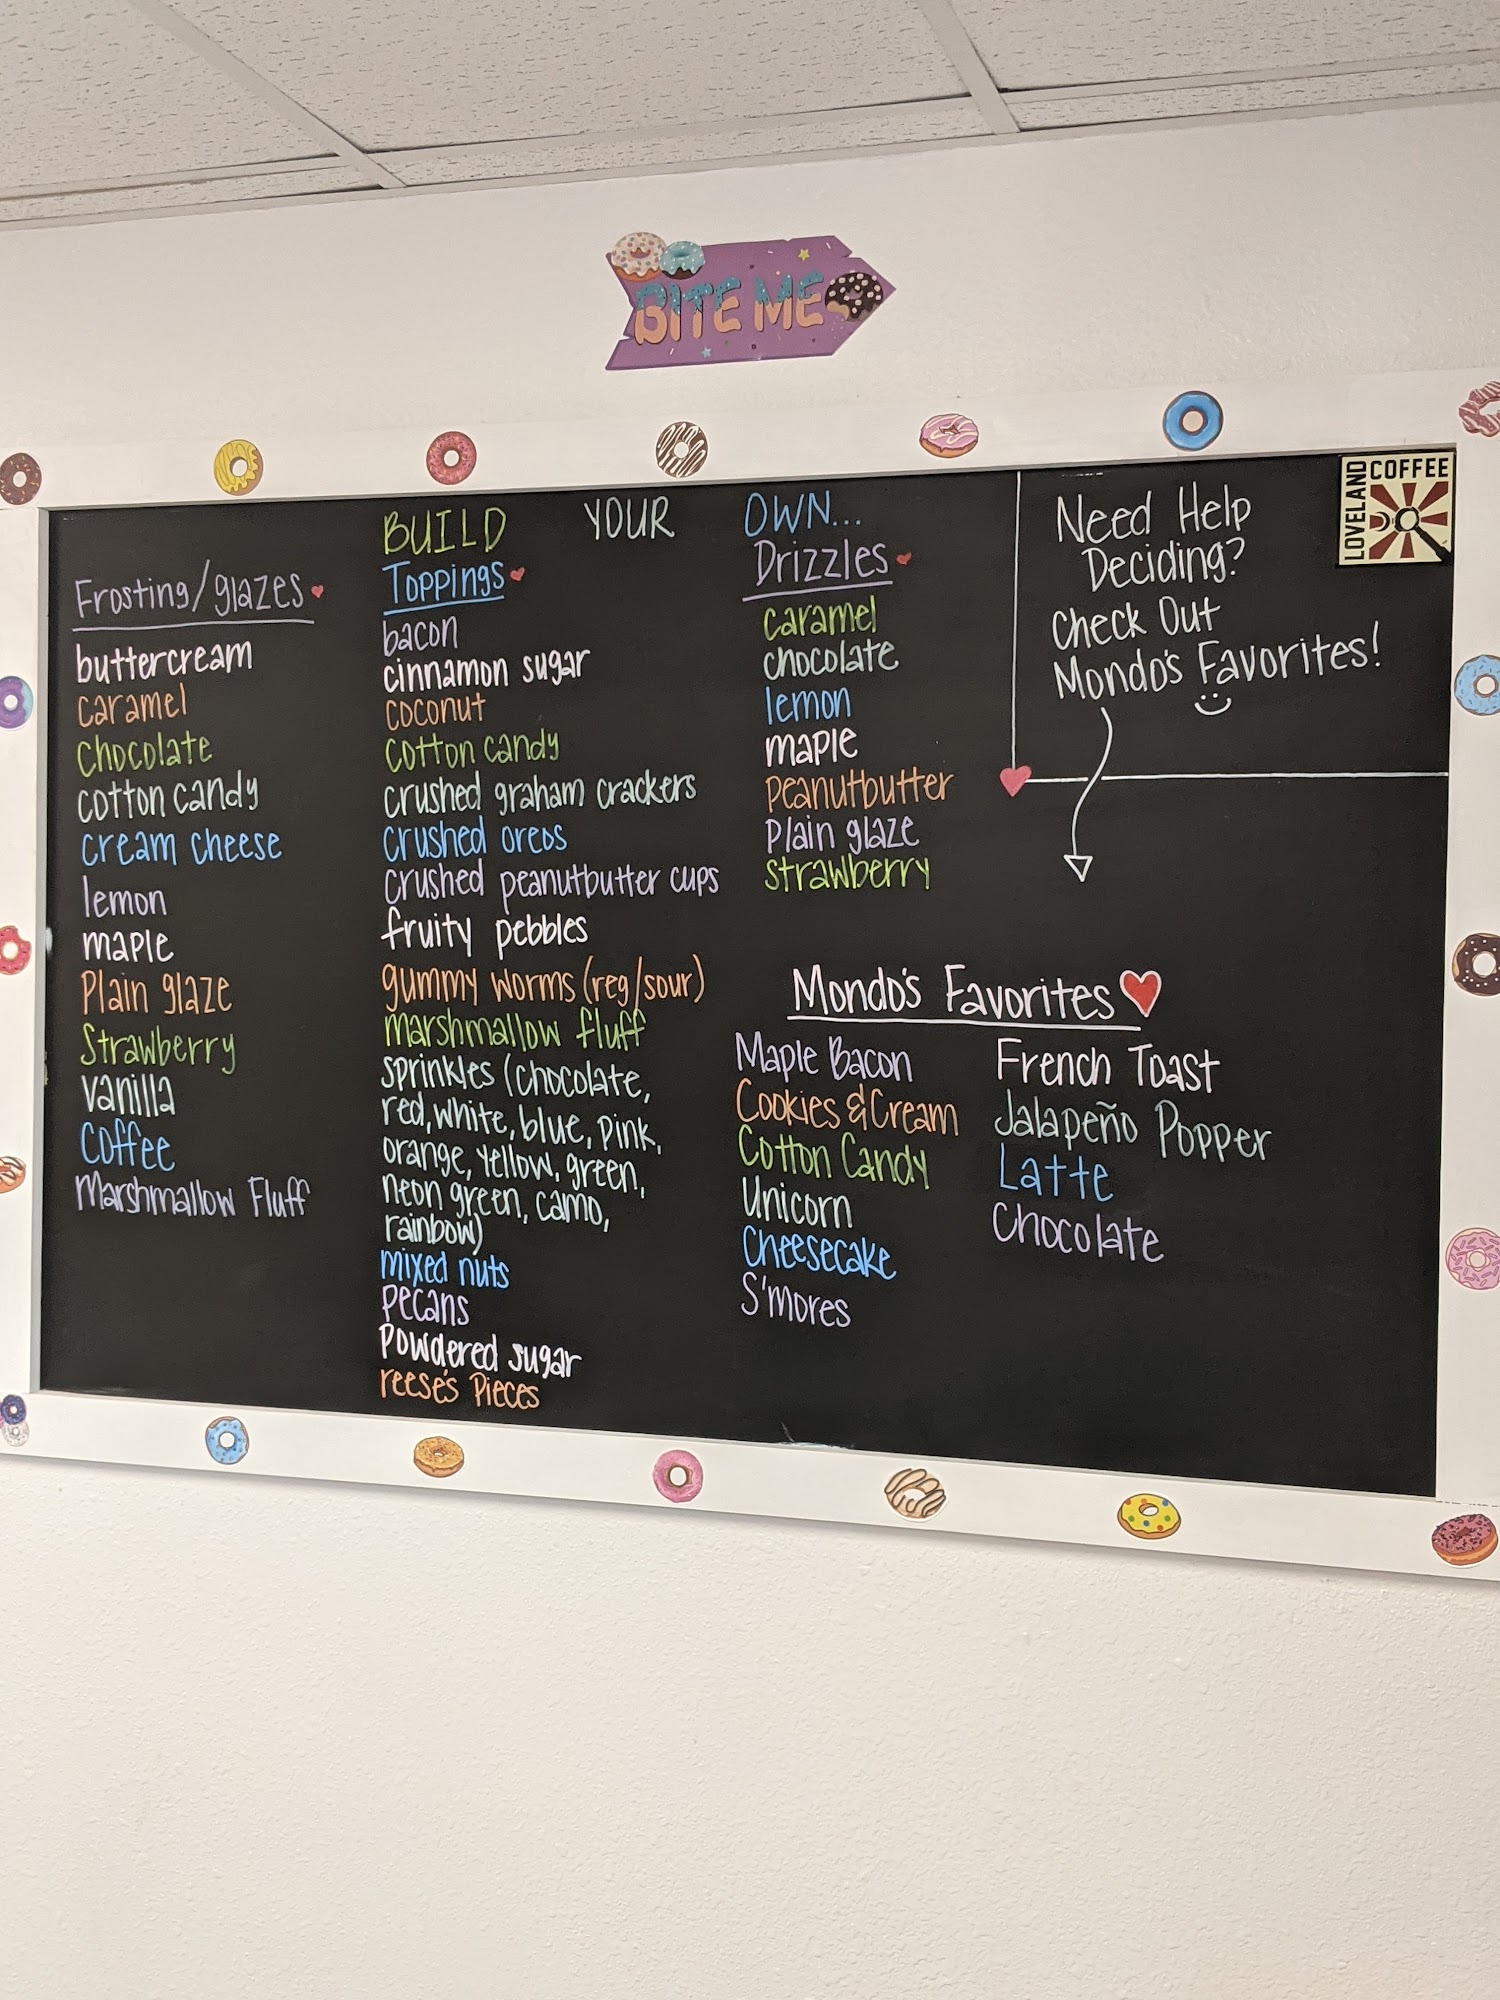 BITE ME
BUILD YOUR OWN...
Frosting/glazes
buttercream
caramel
chocolate
cotton candy
cream cheese
lemon
maple
Plain glaze
Strawberry
Vanilla
Coffee
Marshmallow Fluff
Toppings
bacon
cinnamon sugar
coconut
cotton candy
crushed graham crackers
crushed oreos
crushed peanutbutter cups
fruity pebbles
gummy worms (reg/sour)
marshmallow fluff
sprinkles (chocolate,
red, white, blue, pink,
orange, yellow, green,
neon green, camo,
rainbow)
mixed nuts
pecans
Powdered sugar
reese's Pieces
Drizzles
caramel
chocolate
lemon
maple
Peanutbutter
Plain glaze
Strawberry
Need Help
Deciding?
Check Out
Mondo's Favorites!
LOVELAND COFFEE
Mondo's Favorites
Maple Bacon
Cookies & Cream
Cotton Candy
Unicorn
Cheesecake
S'mores
French Toast
Jalapeño Popper
Latte
Chocolate